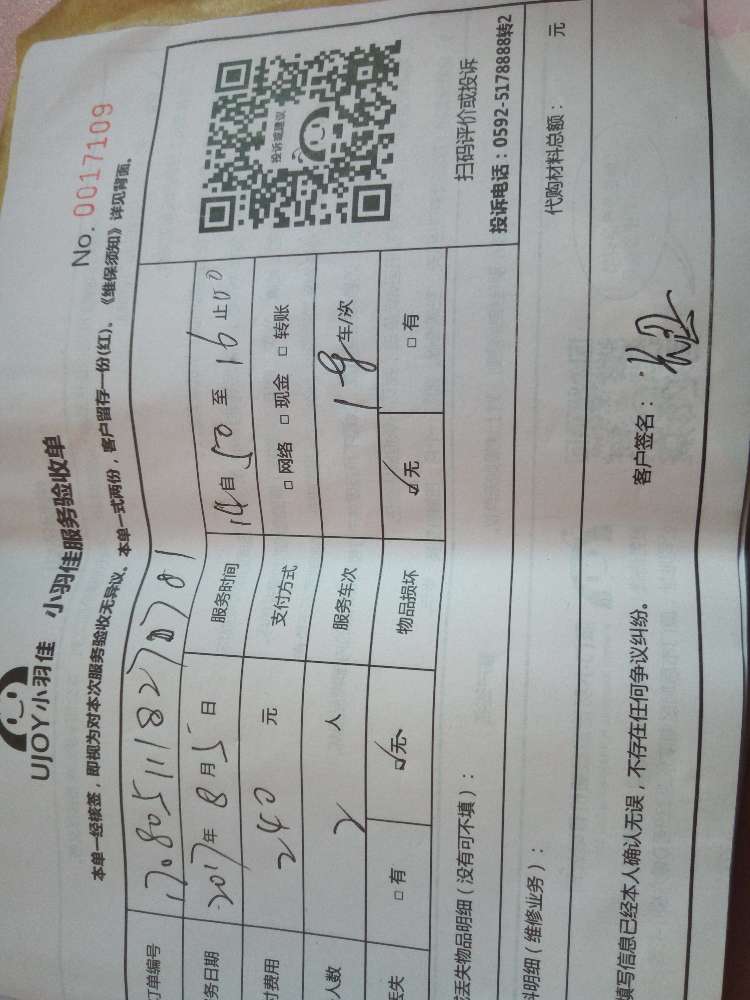 UJOY小羽佳 小羽佳服务验收单
No. 0017109
本单一经核签，即视为对本次服务验收无异议。本单一式两份，客户留存一份(红)、《维保须知》详见背面。
订单编号
服务日期 2017年8月5日 服务时间 14自50至16止00
付费用 240元 支付方式 □网络 □现金 □转账
人数 2人 服务车次 1 车/次
丢失 □有 ☑无 物品损坏 ☑无 □有
投诉或建议
扫码评价或投诉
投诉电话：0592-5178888转2
丢失物品明细（没有可不填）：
料明细（维修业务）： 代购材料总额： 元
填写信息已经本人确认无误，不存在任何争议纠纷。 客户签名：